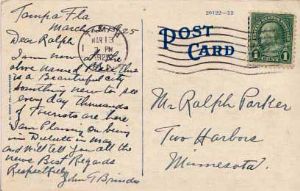 Tampa Fla
March 1925
Dear Ralph
I am now at the
above named place. This
is a Beautiful city
Something new to see
every day thousands
of Tourists are here
I am planning on being
in Duluth in May
and will tell you all the
news Best Regards
Respectfully
John G Brinder
MAR 13
PM
20122-32
POST
CARD
1
Mr Ralph Parker
Two Harbors
Minnesota.